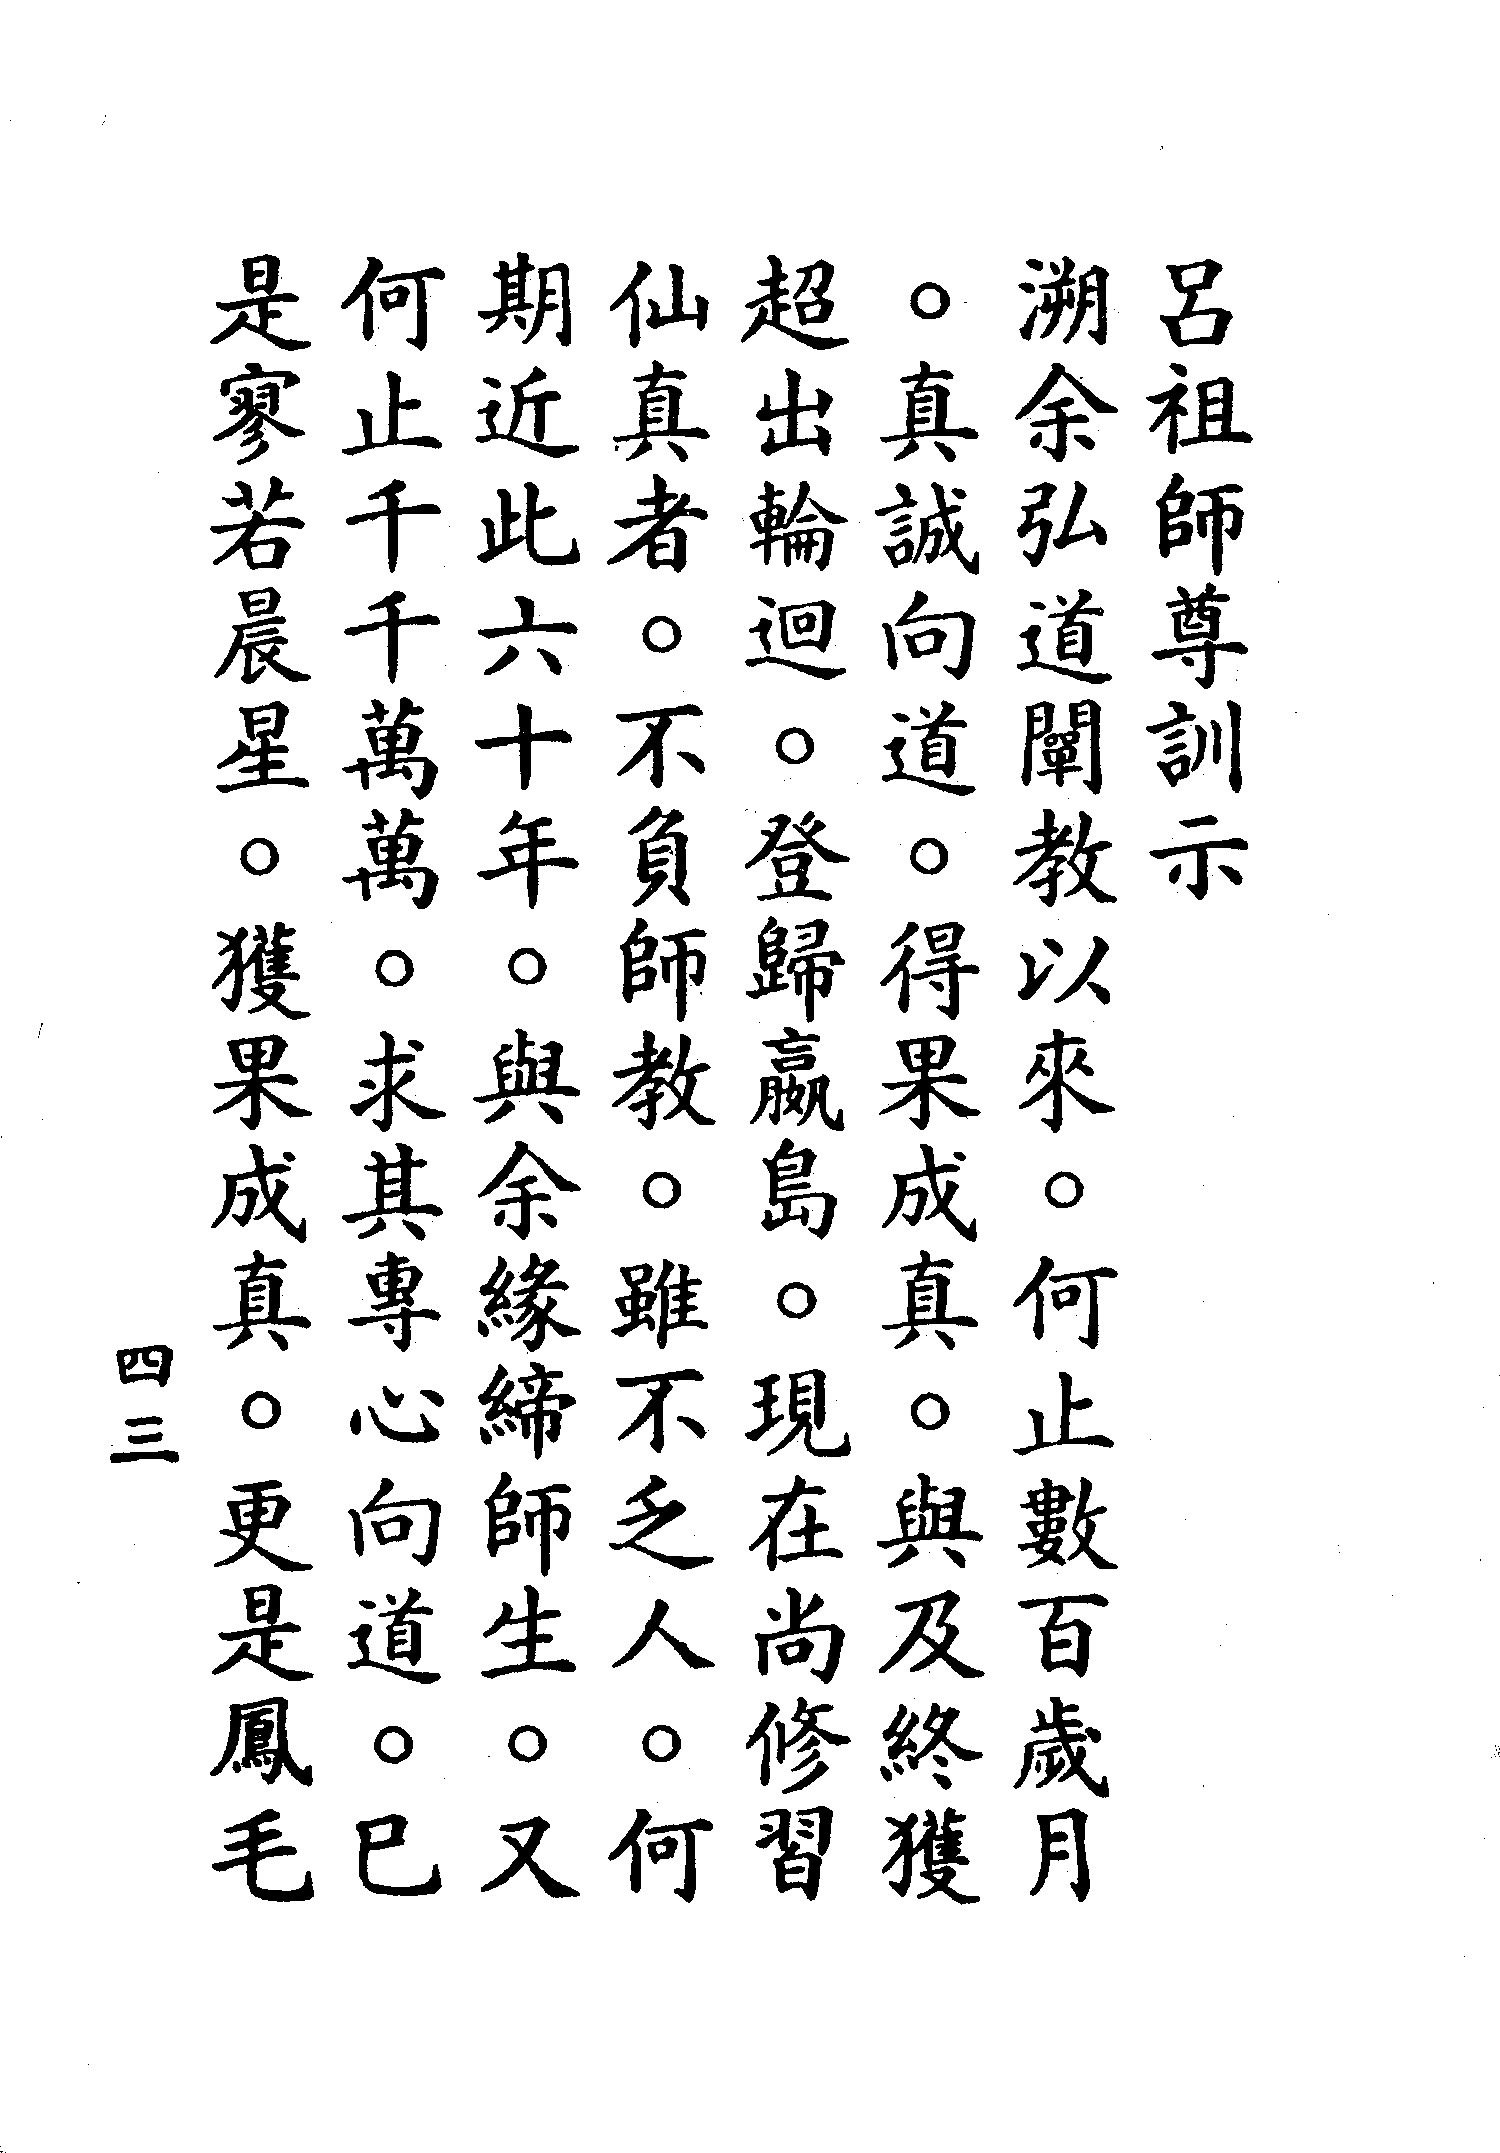 呂祖師尊訓示
溯余弘道闡教以來。何止數百歲月
。真誠向道。得果成真。與及終獲
超出輪迴。登歸嬴島。現在尚修習
仙真者。不負師教。雖不乏人。何
期近此六十年。與余緣締師生。又
何止千千萬萬。求其專心向道。已
是寥若晨星。獲果成真。更是鳳毛
四三